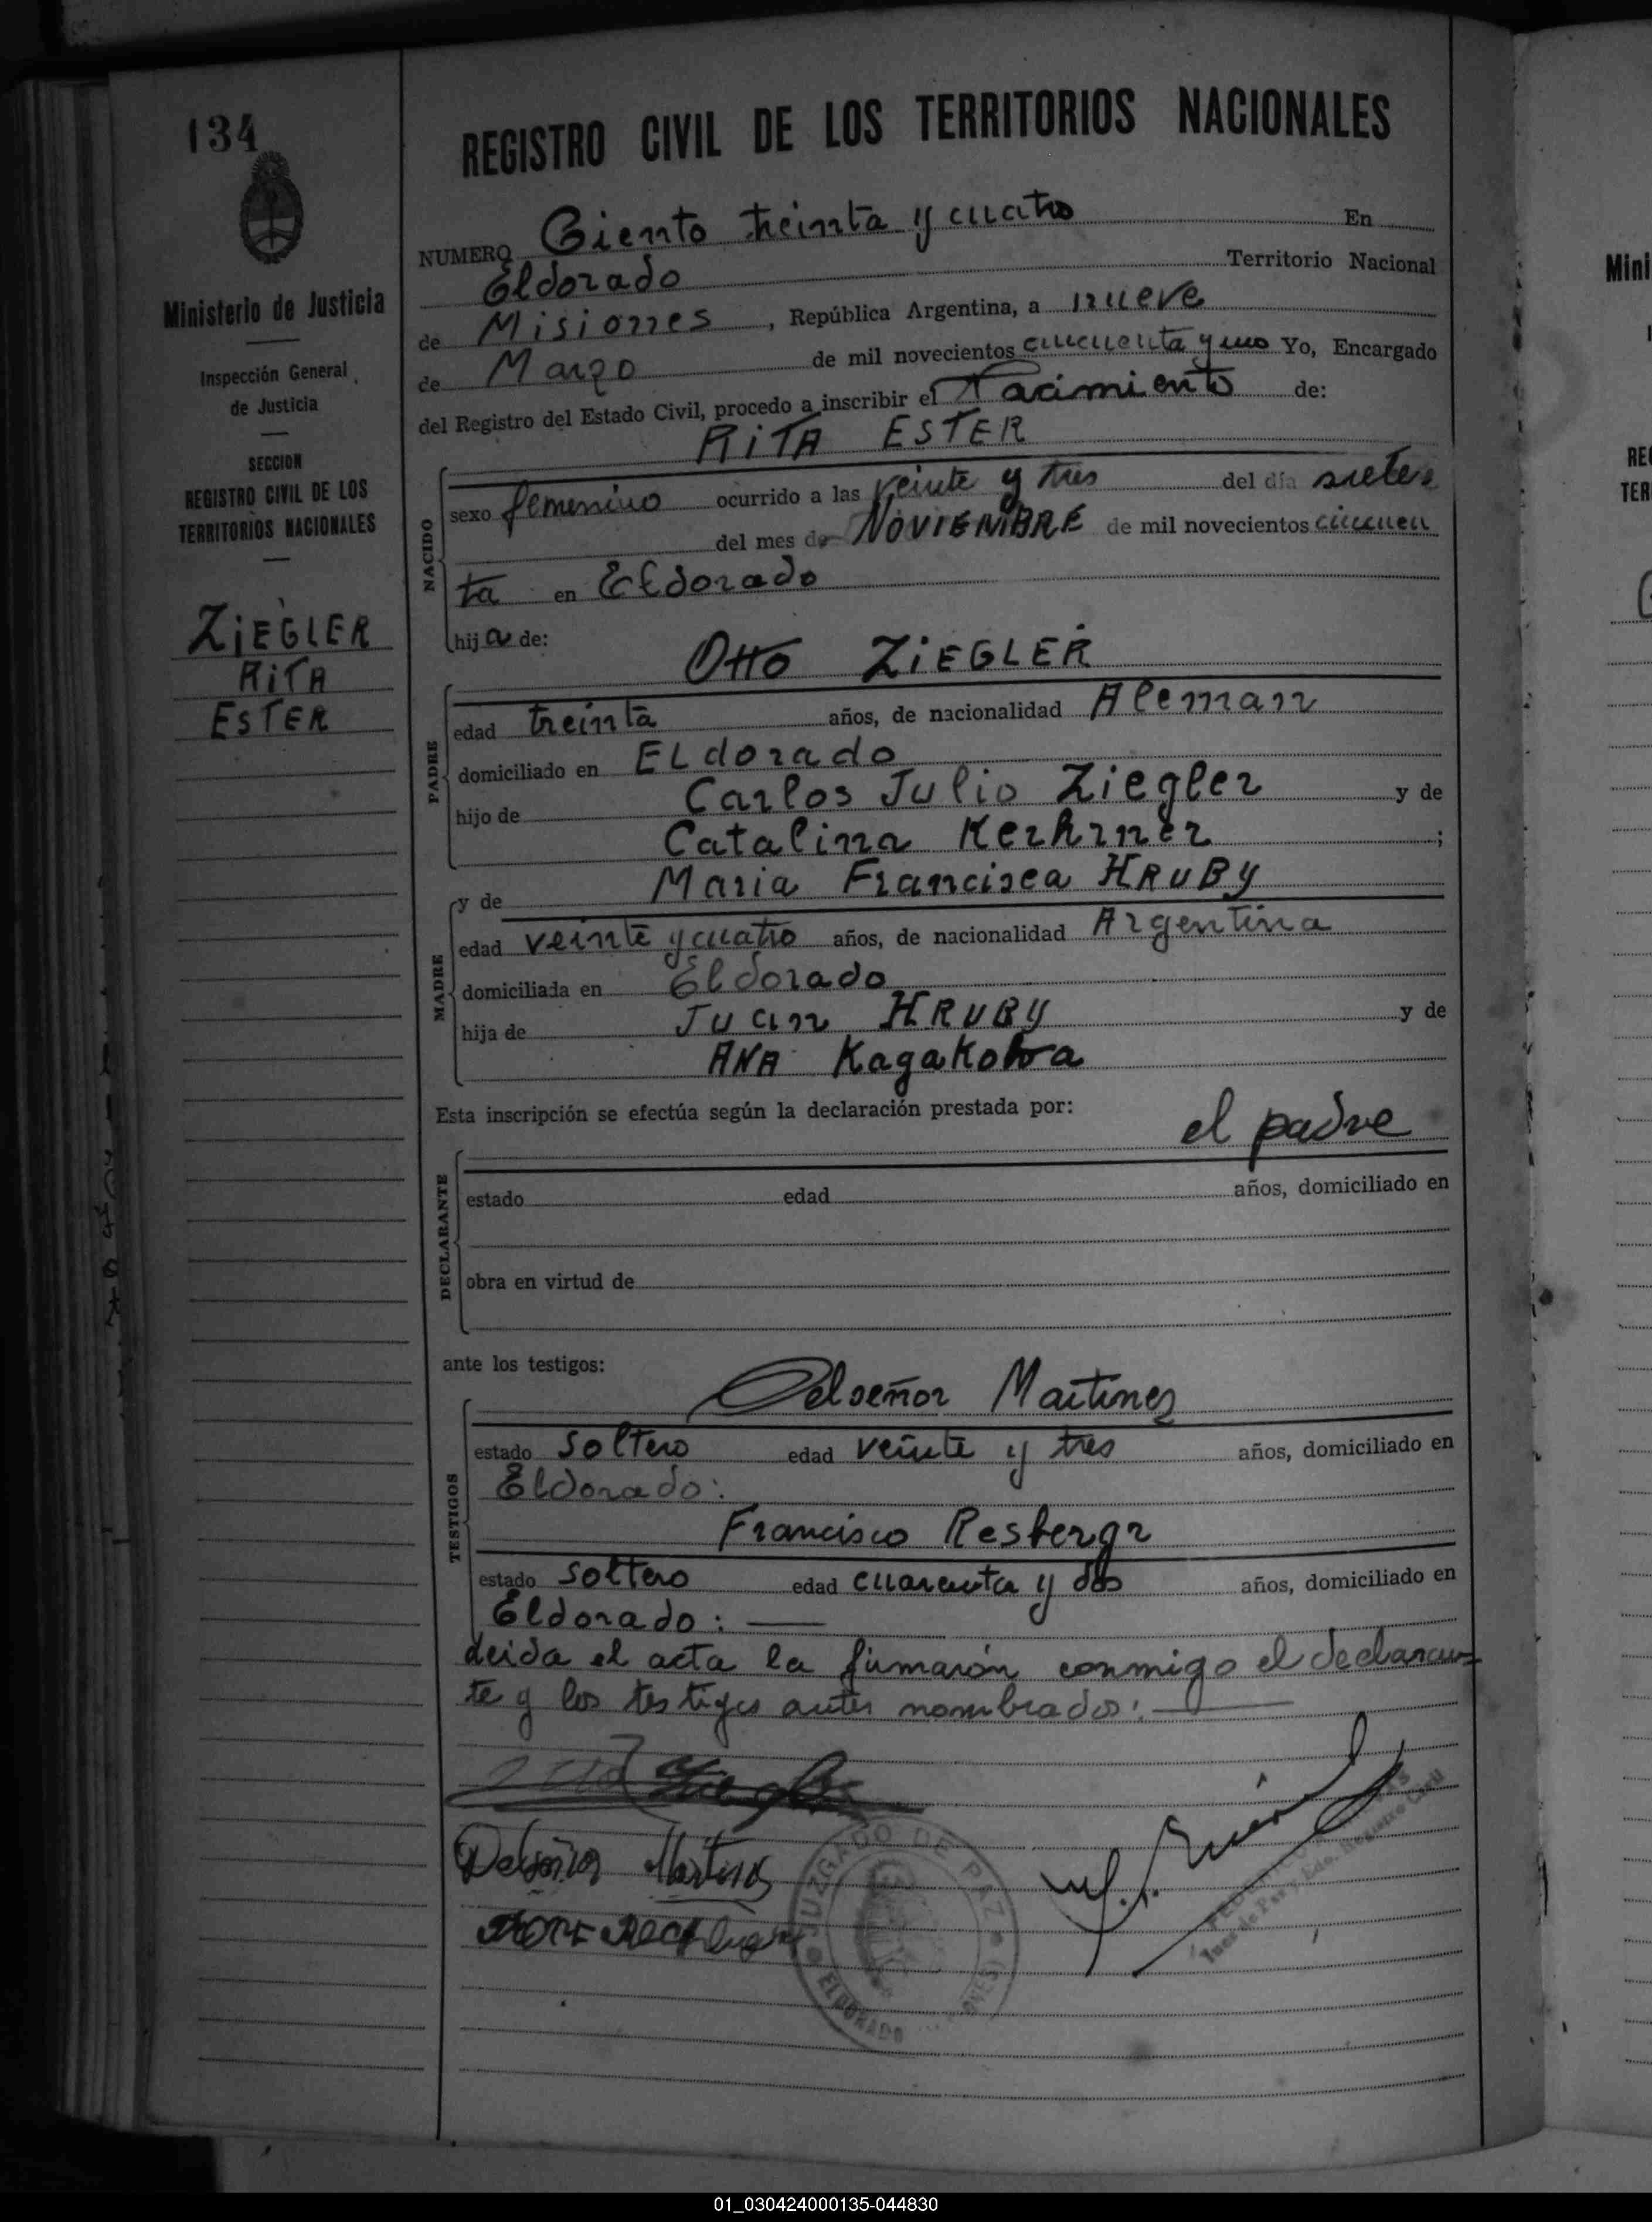 134
REGISTRO CIVIL DE LOS TERRITORIOS NACIONALES
Ministerio de Justicia
Inspección General
de Justicia
SECCION
REGISTRO CIVIL DE LOS
TERRITORIOS NACIONALES
ZiEGLER
RiTA
ESTER
NUMERO Ciento treinta y cuatro En
Eldorado Territorio Nacional
de Misiones, República Argentina, a nueve
de Marzo de mil novecientos cincuenta y uno Yo, Encargado
del Registro del Estado Civil, procedo a inscribir el Nacimiento de:
RiTA ESTER
NACIDO
sexo femenino ocurrido a las veinte y tres del día siete
del mes de NOVIEMBRE de mil novecientos cincuen
ta en Eldorado
hija de:
Otto ZiEGLER
PADRE
edad treinta años, de nacionalidad Aleman
domiciliado en ELdorado
hijo de Carlos Julio Ziegler y de
Catalina Kerhner;
y de Maria Francisca HRUBY
MADRE
edad veinte y cuatro años, de nacionalidad Argentina
domiciliada en Eldorado
hija de Juan HRUBY y de
ANA
Esta inscripción se efectúa según la declaración prestada por:
el padre
DECLARANTE
estado edad años, domiciliado en
obra en virtud de
ante los testigos:
Delseñor Martinez
TESTIGOS
estado soltero edad veinte y tres años, domiciliado en
Eldorado:
Francisco
estado soltero edad cuarenta y dos años, domiciliado en
Eldorado: —
leida el acta la firmarón conmigo el declaran-
te y los testigos antes nombrados: —
Delseñor Martinez
JUZGADO DE PAZ
ELDORADO
Juez de Paz y Edo. Registro Civil
Mini
RE
TER
01_030424000135-044830